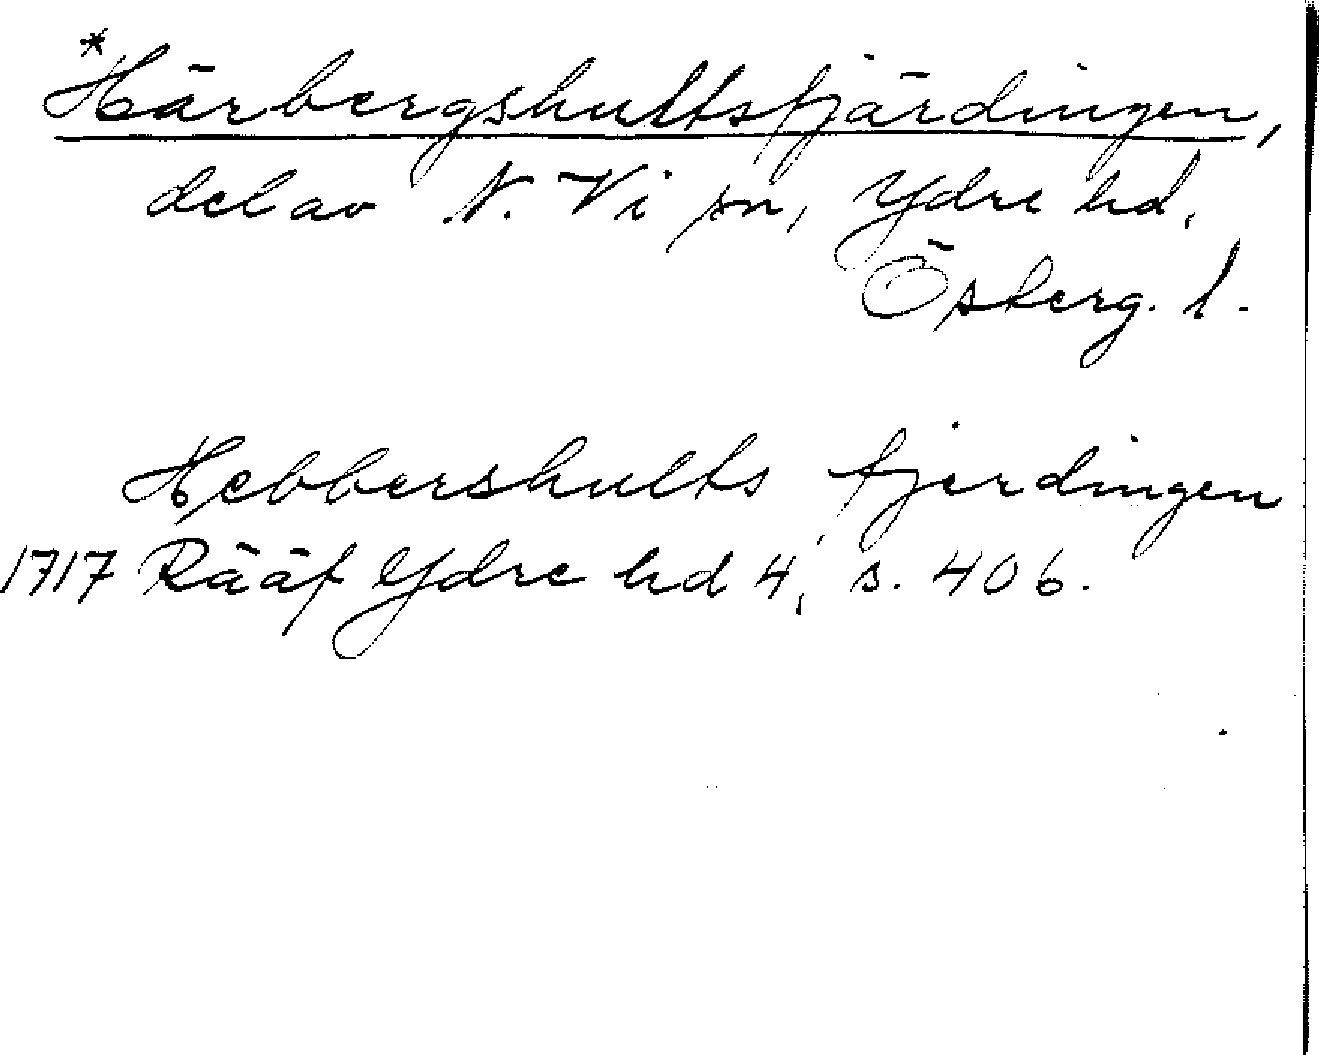 *Härbergshultsfjärdingen,
del av N. Vi sn, Ydre hd,
Österg. l.
Hebbershults fjerdingen
1717 Rääf Ydre hd 4, s. 406.